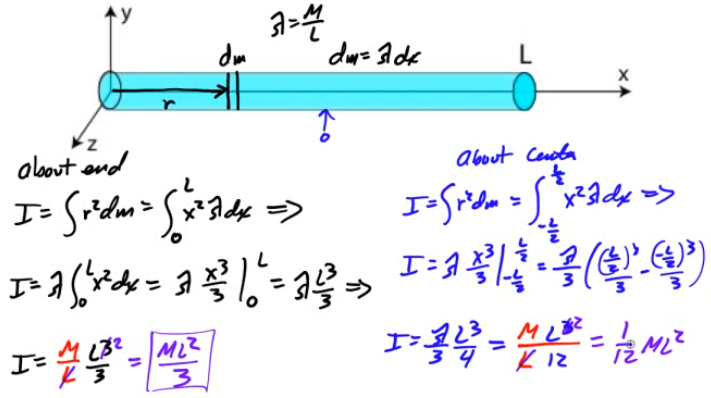 y
λ = M/L
dm
dm = λdx
L
x
r
0
z
about end
I = ∫r²dm = ∫₀ᴸ x²λdx ⇒
I = λ∫₀ᴸ x²dx = λ x³/3 |₀ᴸ = λ L³/3 ⇒
I = M/L L³²/3 = ML²/3
About Center
I = ∫r²dm = ∫_{-L/2}^{L/2} x²λdx ⇒
I = λ x³/3 |_{-L/2}^{L/2} = λ/3 ((L/2)³/3 - (-L/2)³/3)
I = λ/3 L³/4 = M L³²/L 12 = 1/12 ML²